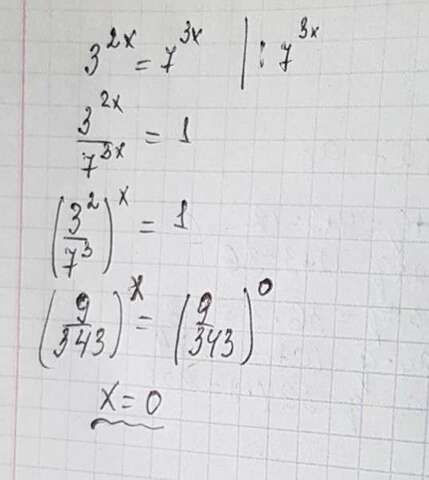 3^{2x} = 7^{3x} | : 7^{3x}
\frac{3^{2x}}{7^{3x}} = 1
\left(\frac{3^2}{7^3}\right)^x = 1
\left(\frac{9}{343}\right)^x = \left(\frac{9}{343}\right)^0
x = 0